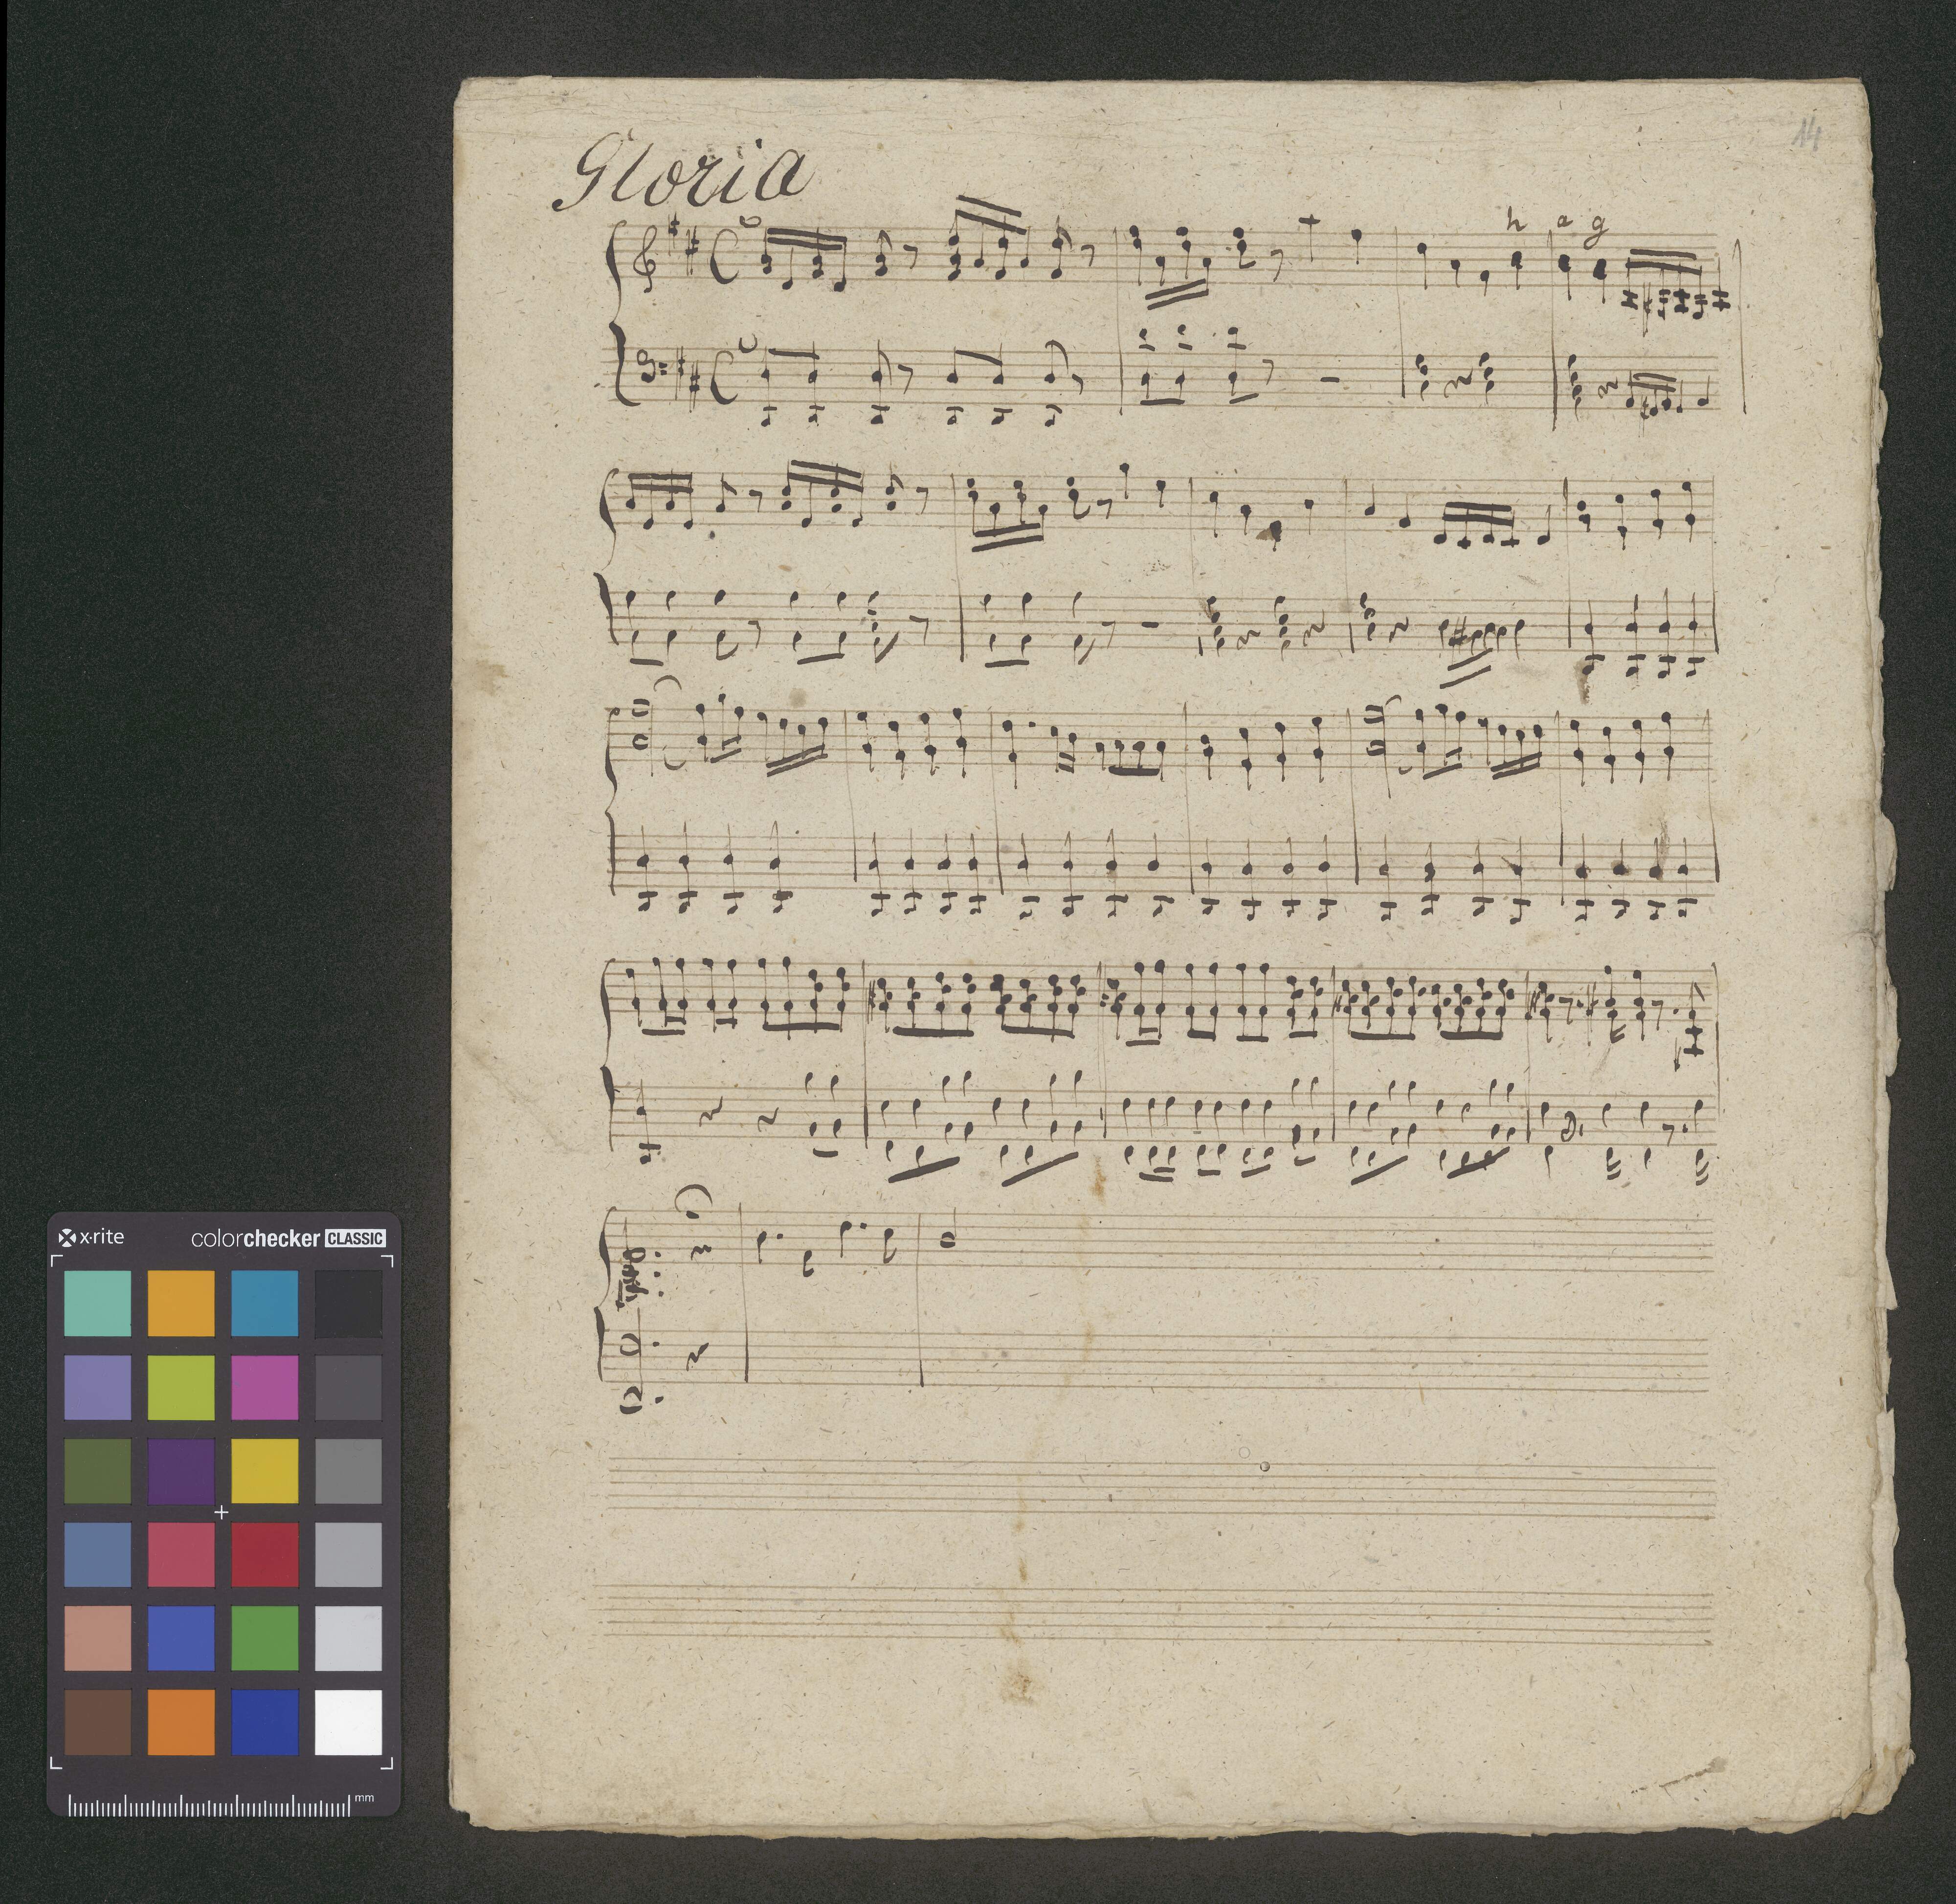 14
Gloria
h a g
x-rite colorchecker CLASSIC
mm